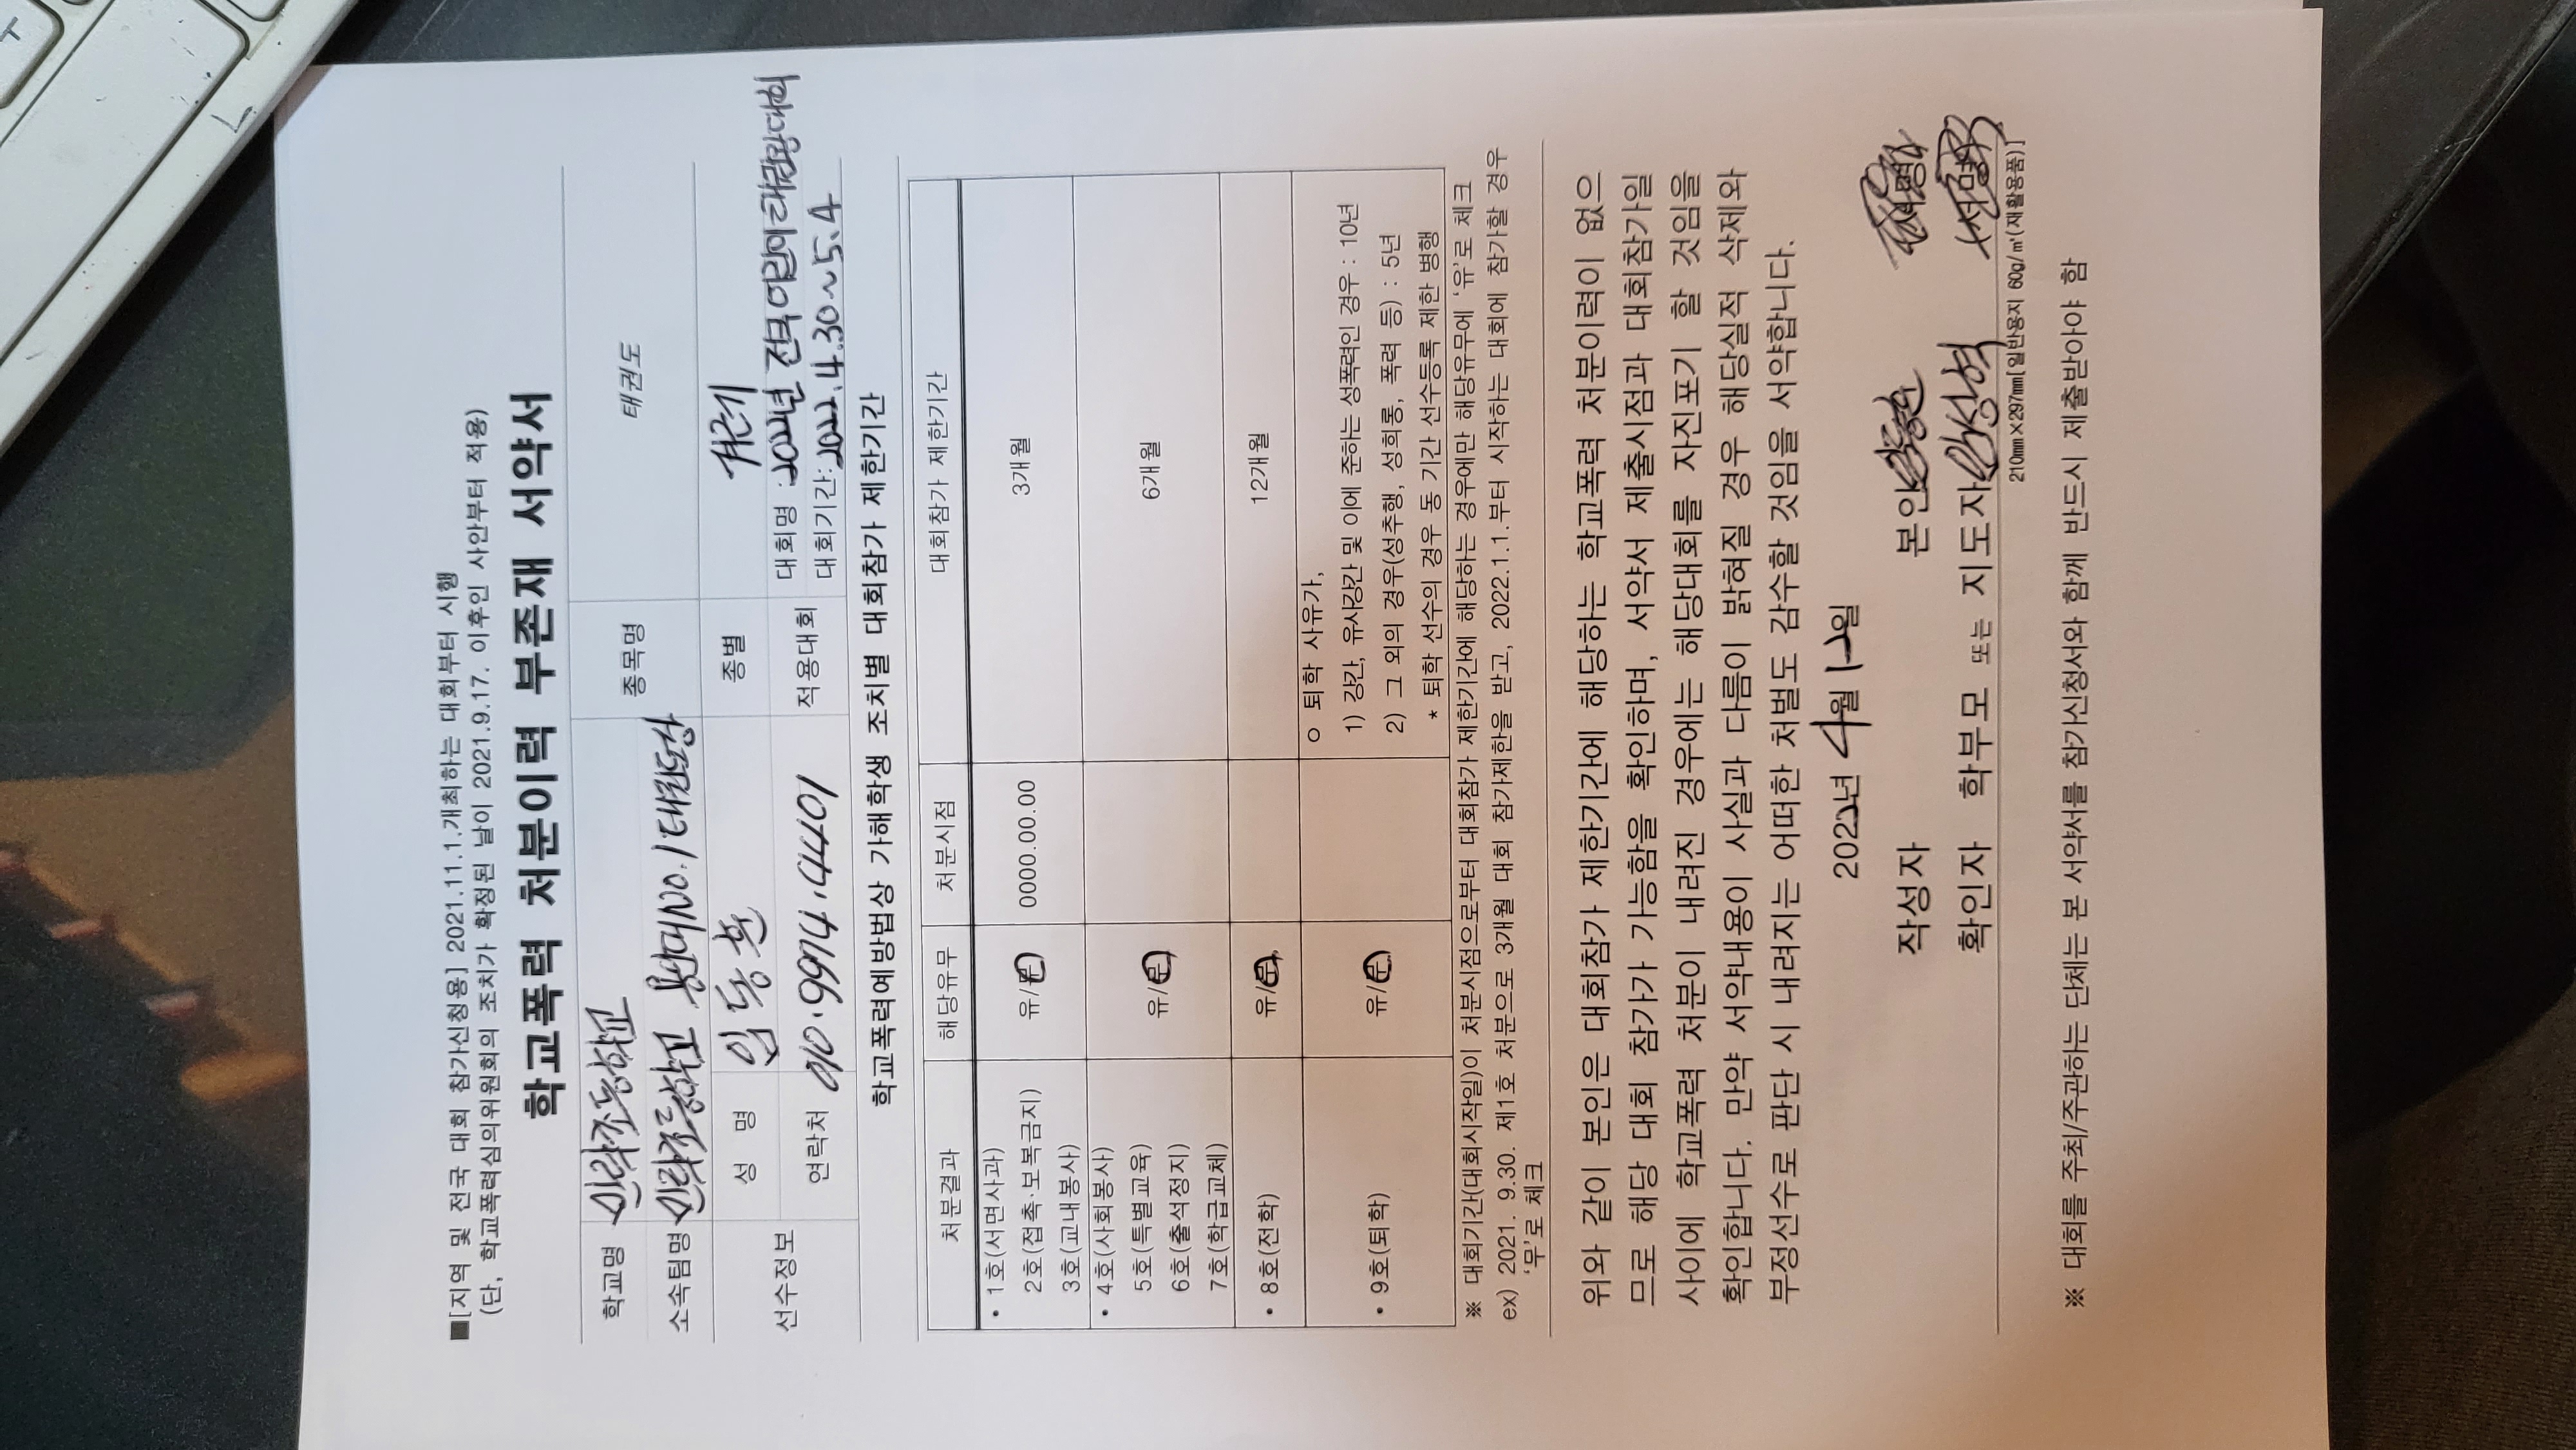 ■[지역 및 전국 대회 참가신청용] 2021.11.1.개최하는 대회부터 시행
(단, 학교폭력심의위원회의 조치가 확정된 날이 2021.9.17. 이후인 사안부터 적용)
학교폭력 처분이력 부존재 서약서
학교명 민락초등학교 종목명 태권도
소속팀명 민락초등학교 용인대No.1태권도장
선수정보 성 명 임동훈 종별 겨루기
연락처 010.9974.4401 적용대회 대회명 : 2022년 전국어린이태권왕대회
대회기간: 2022.4.30~5.4
학교폭력예방법상 가해학생 조치별 대회참가 제한기간
처분결과 해당유무 처분시점 대회참가 제한기간
• 1호(서면사과)
2호(접촉·보복금지) 유/무 0000.00.00 3개월
3호(교내봉사)
• 4호(사회봉사)
5호(특별교육) 유/무 6개월
6호(출석정지)
7호(학급교체)
• 8호(전학) 유/무 12개월
• 9호(퇴학) 유/무
ㅇ 퇴학 사유가,
1) 강간, 유사강간 및 이에 준하는 성폭력인 경우 : 10년
2) 그 외의 경우(성추행, 성희롱, 폭력 등) : 5년
* 퇴학 선수의 경우 동 기간 선수등록 제한 병행
※ 대회기간(대회시작일)이 처분시점으로부터 대회참가 제한기간에 해당하는 경우에만 해당유무에 '유'로 체크
ex) 2021. 9.30. 제1호 처분으로 3개월 대회 참가제한을 받고, 2022.1.1.부터 시작하는 대회에 참가할 경우
'무'로 체크
위와 같이 본인은 대회참가 제한기간에 해당하는 학교폭력 처분이력이 없으
므로 해당 대회 참가가 가능함을 확인하며, 서약서 제출시점과 대회참가일
사이에 학교폭력 처분이 내려진 경우에는 해당대회를 자진포기 할 것임을
확인합니다. 만약 서약내용이 사실과 다름이 밝혀질 경우 해당실적 삭제와
부정선수로 판단 시 내려지는 어떠한 처벌도 감수할 것임을 서약합니다.
2022년 4월 12일
작성자 본인 (서명)
확인자 학부모 또는 지도자 (서명)
210㎜×297㎜[일반용지 60g/㎡(재활용품)]
※ 대회를 주최/주관하는 단체는 본 서약서를 참가신청서와 함께 반드시 제출받아야 함